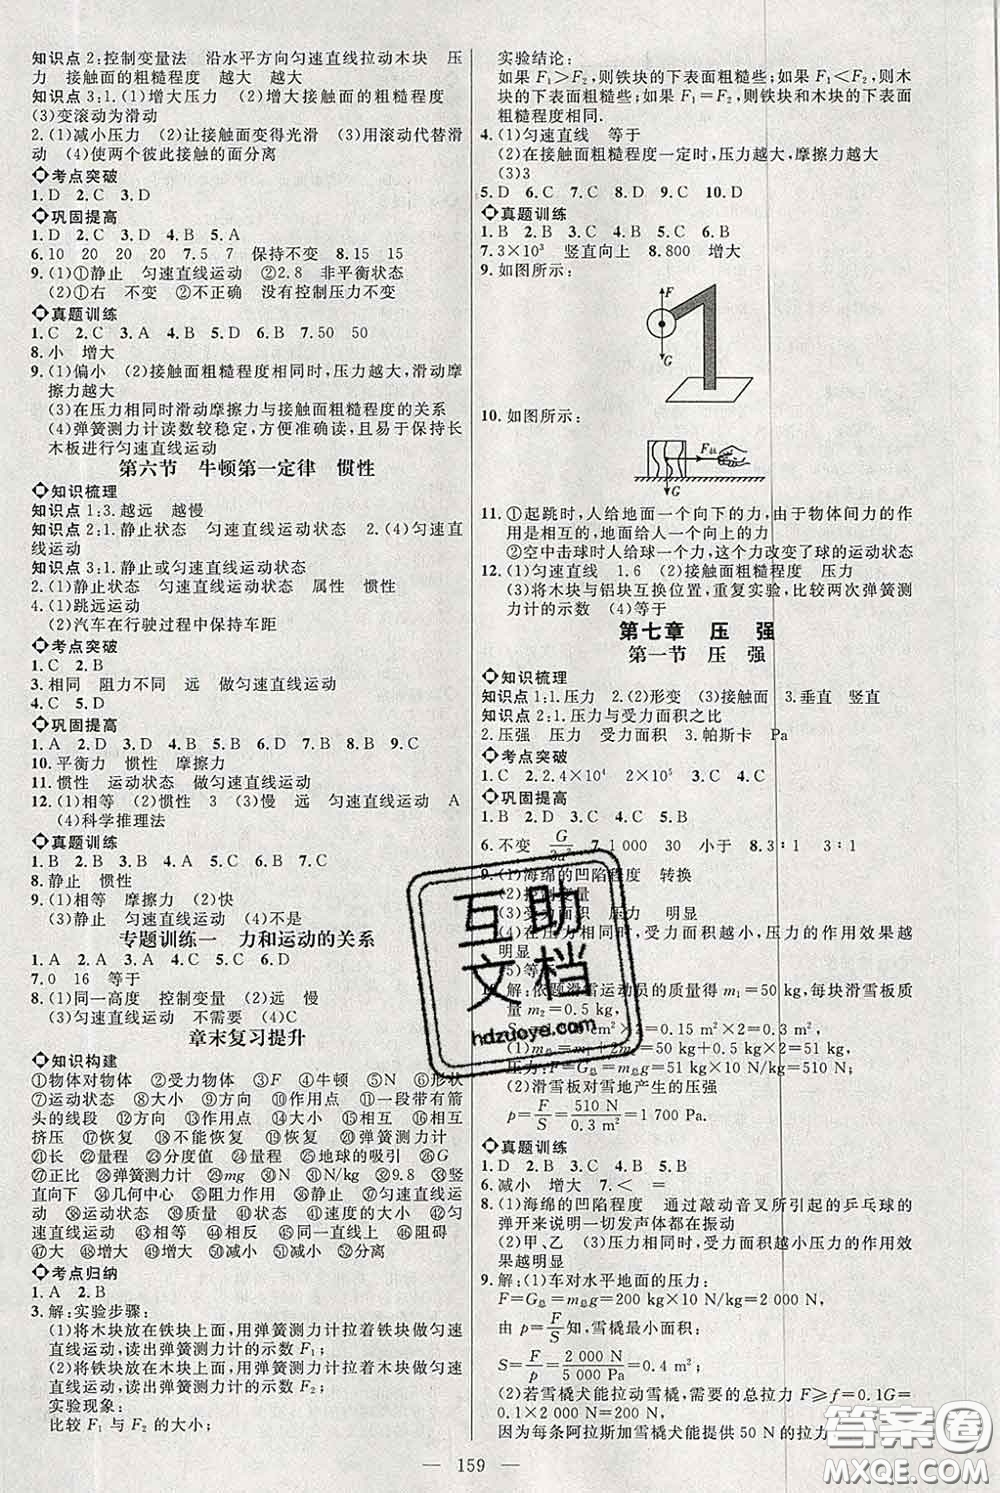 知识点2:控制变量法　沿水平方向匀速直线拉动木块　压
力　接触面的粗糙程度　越大　越大
知识点3:1.(1)增大压力　(2)增大接触面的粗糙程度
(3)变滚动为滑动
2.(1)减小压力　(2)让接触面变得光滑　(3)用滚动代替滑
动　(4)使两个彼此接触的面分离
考点突破
1.D　2.C　3.D
巩固提高
1.D　2.D　3.D　4.B　5.A
6.10　20　20　20　7.5　7　保持不变　8.15　15
9.(1)①静止　匀速直线运动　②2.8　非平衡状态
(2)①右　不变　②不正确　没有控制压力不变
真题训练
1.C　2.C　3.A　4.B　5.D　6.B　7.50　50
8.小　增大
9.(1)偏小　(2)接触面粗糙程度相同时,压力越大,滑动摩
擦力越大
(3)在压力相同时滑动摩擦力与接触面粗糙程度的关系
(4)弹簧测力计读数较稳定,方便准确读,且易于保持长
木板进行匀速直线运动
第六节　牛顿第一定律　惯性
知识梳理
知识点1:3.越远　越慢
知识点2:1.静止状态　匀速直线运动状态　2.(4)匀速直
线运动
知识点3:1.静止或匀速直线运动状态
2.(1)静止状态　匀速直线运动状态　属性　惯性
4.(1)跳远运动
(2)汽车在行驶过程中保持车距
考点突破
1.C　2.B
3.相同　阻力不同　远　做匀速直线运动
4.C　5.D
巩固提高
1.A　2.D　3.D　4.D　5.A　6.A　7.D　8.B　9.C
10.平衡力　惯性　摩擦力
11.惯性　运动状态　做匀速直线运动
12.(1)相等　(2)惯性　3　(3)慢　远　匀速直线运动　A
(4)科学推理法
真题训练
1.B　2.B　3.A　4.C　5.C　6.D　7.D
8.静止　惯性
9.(1)相等　摩擦力　(2)快
(3)静止　匀速直线运动　(4)不是
专题训练一　力和运动的关系
1.A　2.A　3.A　4.C　5.C　6.D
7.0　16　等于
8.(1)同一高度　控制变量　(2)远　慢
(3)匀速直线运动　不需要　(4)C
章末复习提升
知识构建
①物体对物体　②受力物体　③F　④牛顿　⑤N　⑥形状
⑦运动状态　⑧大小　⑨方向　⑩作用点　⑪一段带有箭
头的线段　⑫大小　⑬方向　⑭作用点　⑮相互　⑯相互
挤压　⑰恢复　⑱不能恢复　⑲大　⑳弹簧测力计
㉑长　㉒量程　㉓分度值　㉔量程　㉕地球的吸引　㉖G
㉗正比　㉘弹簧测力计　㉙mg　㉚N　㉛N/kg　㉜9.8　㉝竖
直向下　㉞几何中心　㉟阻力　㊱静止　㊲匀速直线
运动　㊳运动状态　㊴质量　㊵状态　㊶速度的大小　㊷匀
速直线运动　㊸相等　㊹相反　㊺同一直线上　㊻阻碍
㊼大　㊽增大　㊾增大　㊿减小　51减小　52分离
考点归纳
1.A　2.B
3.解:实验步骤:
(1)将木块放在铁块上面,用弹簧测力计拉着铁块做匀速
直线运动,读出弹簧测力计的示数F₁;
(2)将铁块放在木块上面,用弹簧测力计拉着木块做匀速
直线运动,读出弹簧测力计的示数F₂.
实验现象:
比较F₁与F₂的大小;
实验结论:
如果F₁>F₂,则铁块的下表面粗糙些;如果F₁<F₂,则木
块的下表面粗糙些;如果F₁=F₂,则铁块和木块的下表面
粗糙程度相同.
4.(1)匀速直线　等于
(2)在接触面粗糙程度一定时,压力越大,摩擦力越大
(3)3
5.D　6.C　7.C　8.D　9.C　10.D
真题训练
1.B　2.B　3.C　4.D　5.C　6.B
7.3×10³　竖直向上　8.800　增大
9.如图所示:
F
G
10.如图所示:
F
G
11.①起跳时,人给地面一个向下的力,由于物体间力的作
用是相互的,地面给人一个向上的力
②空中击球时人给球一个力,这个力改变了球的运动状态
12.(1)匀速直线　1.6　(2)接触面粗糙程度　压力
(3)将木块与铝块互换位置,重复实验,比较两次弹簧测
力计的示数　(4)等于
第七章　压　强
第一节　压　强
知识梳理
知识点1:1.压力　2.(2)形变　(3)接触面　3.垂直　竖直
知识点2:1.压力与受力面积之比
2.压强　压力　受力面积　3.帕斯卡　Pa
考点突破
1.C　2.2.4×10⁴　2×10⁵　3.C　4.C
巩固提高
1.B　2.D　3.D　4.C　5.C
6.不变　G/3a²　7.1 000　30　小于　8.3∶1　3∶1
9.(1)海绵的凹陷程度　转换
(2)控制变量
(3)受力面积　压力　明显
(4)在压力相同时,受力面积越小,压力的作用效果越
明显
(5)等
10.解:依题滑雪运动员的质量得m₁=50 kg,每块滑雪板质
量m₂=0.5 kg,
cm²×2=0.15 m²×2=0.3 m².
(1)m总=m₁+2m₂=50 kg+0.5 kg×2=51 kg
压力:F=G总=m总g=51 kg×10 N/kg=510 N
(2)滑雪板对雪地产生的压强
p=F/S=510 N/0.3 m²=1 700 Pa.
真题训练
1.D　2.C　3.D　4.B　5.B
6.减小　增大　7.<　=
8.(1)海绵的凹陷程度　通过敲动音叉所引起的乒乓球的
弹开来说明一切发声体都在振动
(2)甲、乙　(3)压力相同时,受力面积越小压力的作用效
果越明显
9.解:(1)车对水平地面的压力:
F=G总=m总g=200 kg×10 N/kg=2 000 N,
由p=F/S知,雪橇最小面积:
S=F/p=2 000 N/5 000 Pa=0.4 m²;
(2)若雪橇犬能拉动雪橇,需要的总拉力F≥f=0.1G=
0.1×2 000 N=200 N,
因为每条阿拉斯加雪橇犬能提供50 N的拉力
— 159 —
互助
文档
hdzuoye.com
答案圈
MXQE.COM